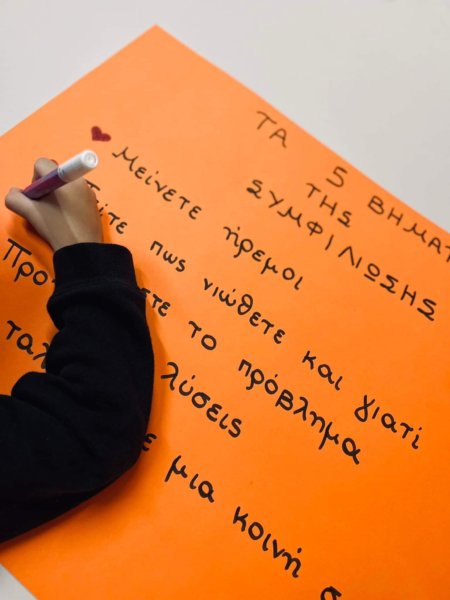 ΤΑ 5 ΒΗΜΑΤ
ΤΗΣ
ΣΥΜΦΙΛΙΩΣΗΣ
Μείνετε ήρεμοι
πως νιώθετε και γιατί
Προ ετε το πρόβλημα
λύσεις
μια κοινή